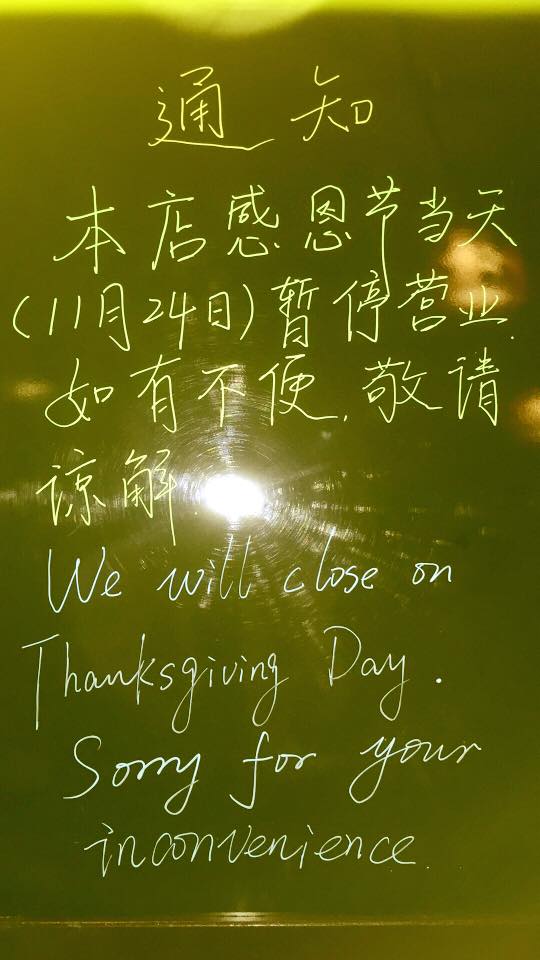 通知
本店感恩节当天
(11月24日)暂停营业.
如有不便,敬请
谅解
We will close on
Thanksgiving Day.
Sorry for your
inconvenience.